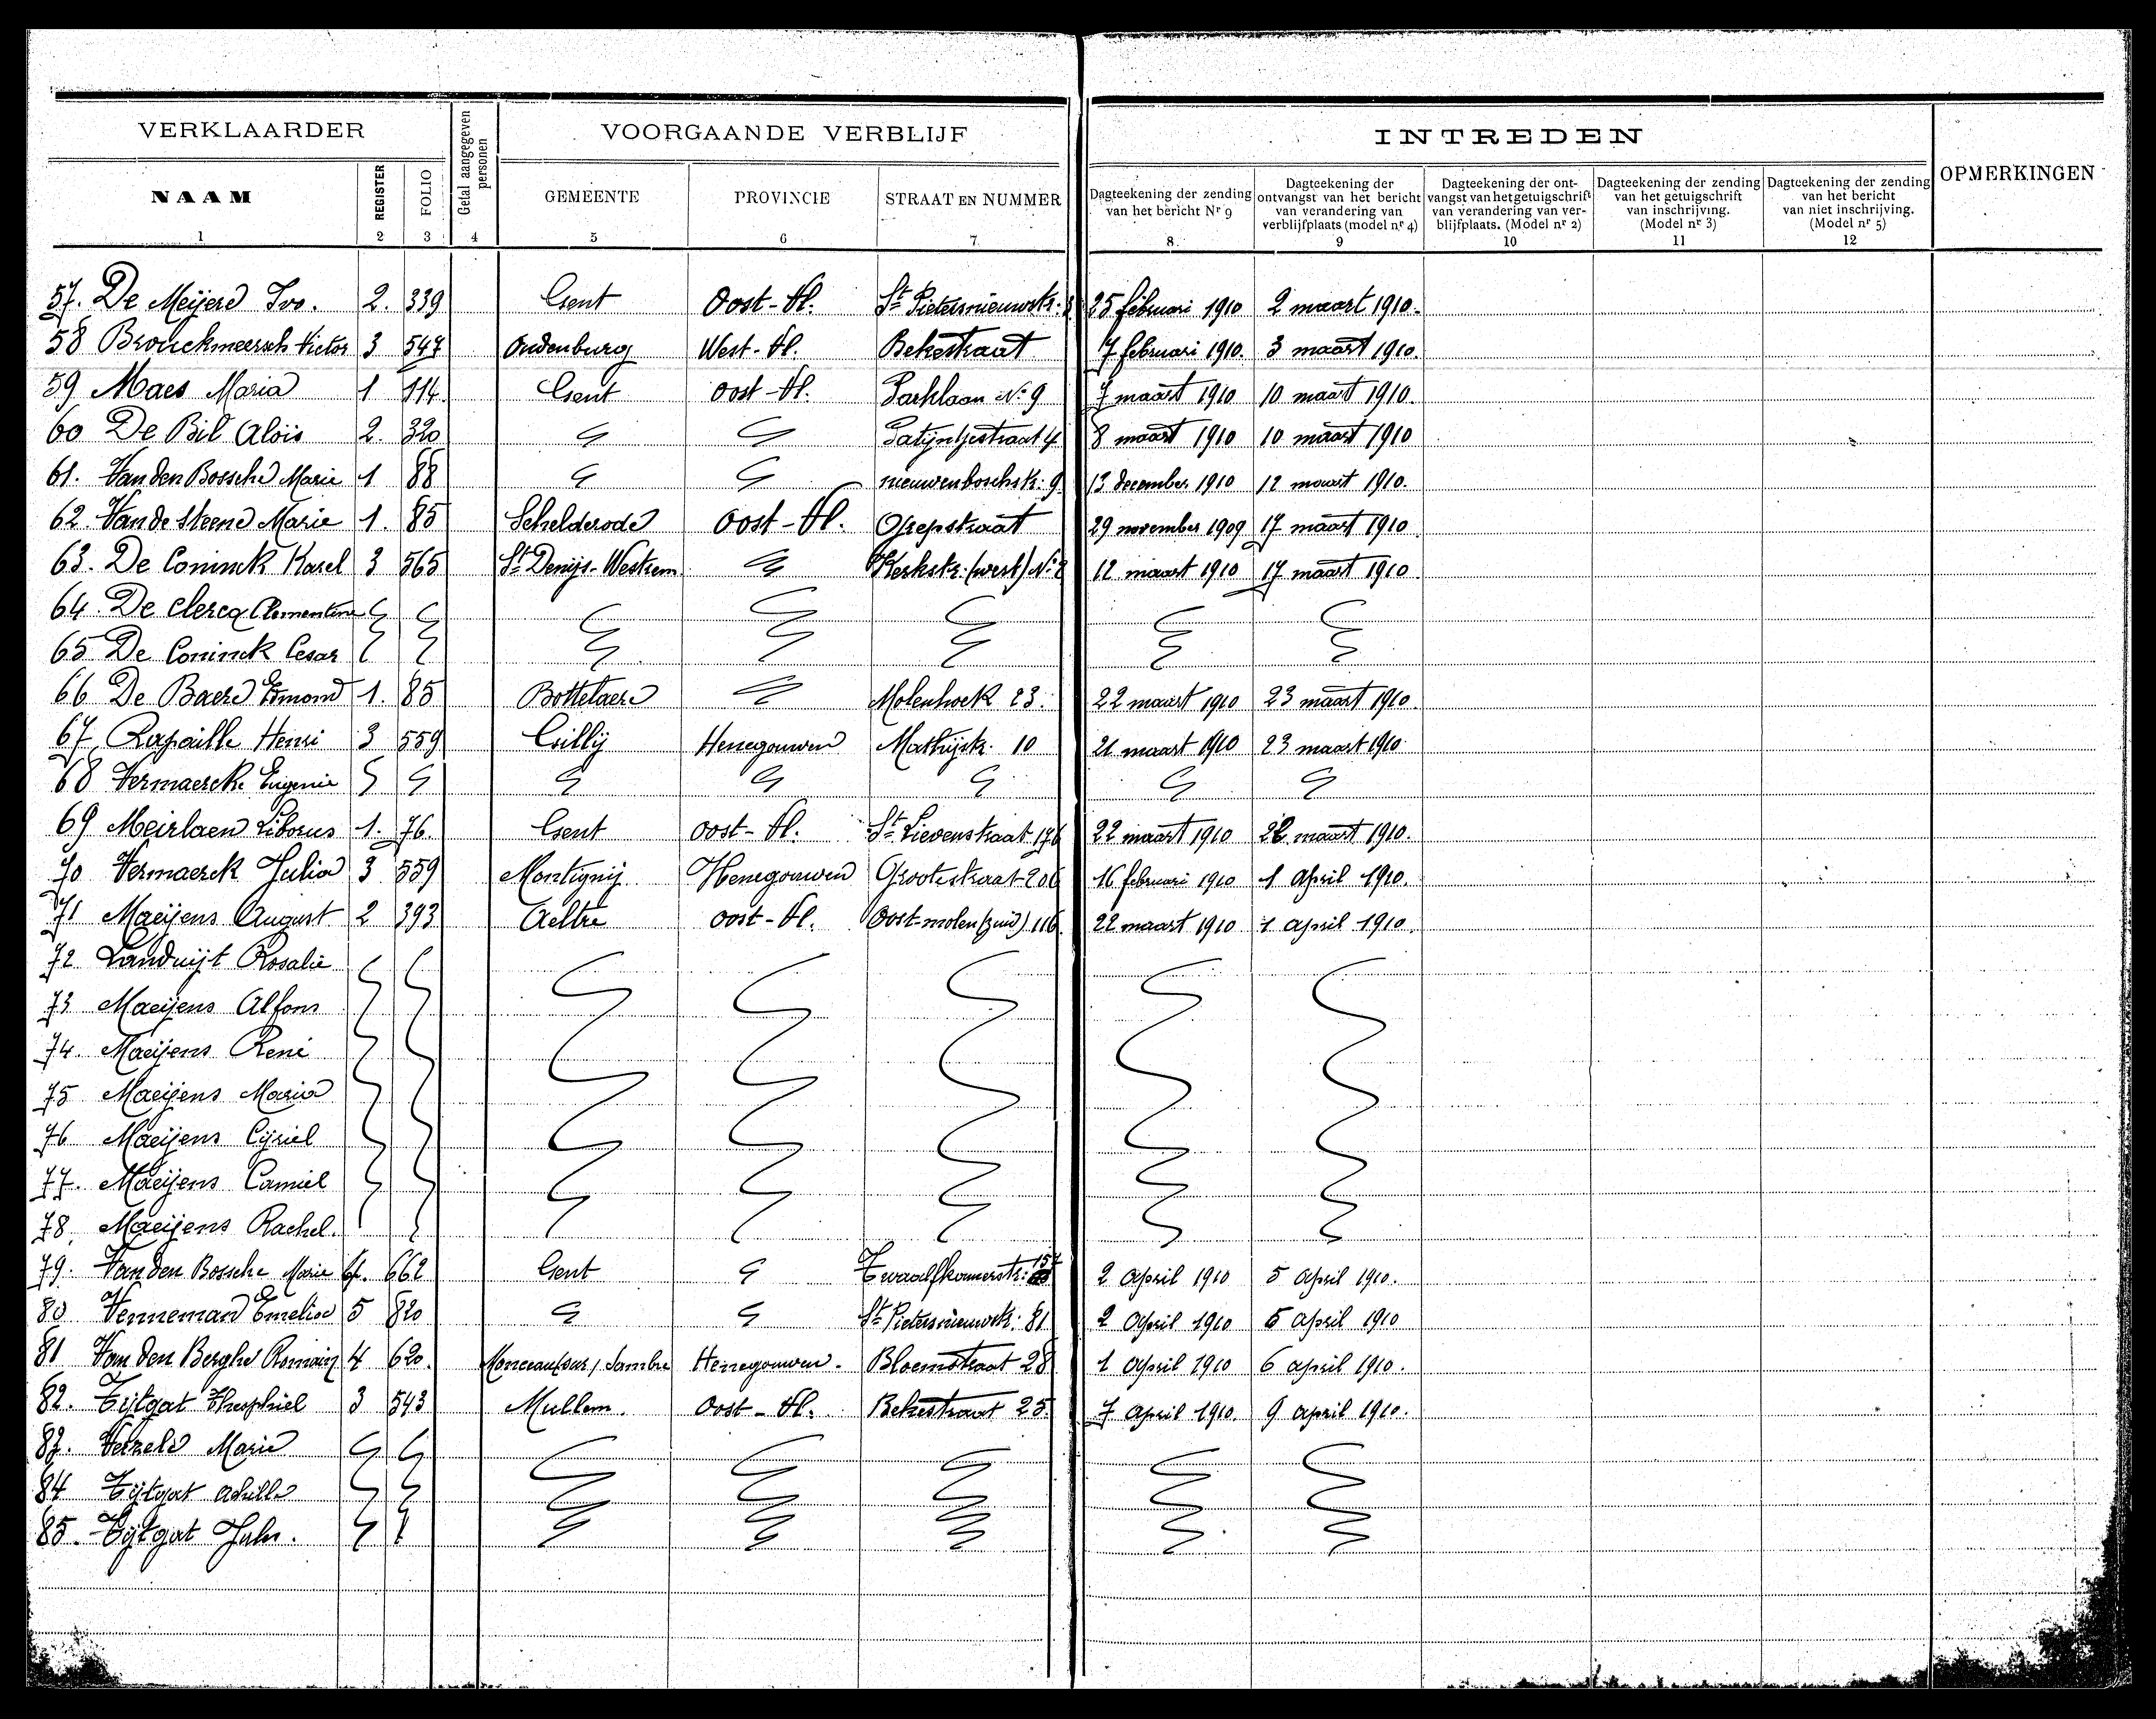 VERKLAARDER Getal aangegeven personen VOORGAANDE VERBLIJF INTREDEN OPMERKINGEN
NAAM REGISTER FOLIO GEMEENTE PROVINCIE STRAAT EN NUMMER
Dagteekening der zending van het bericht Nr 9
Dagteekening der ontvangst van het bericht van verandering van verblijfplaats (model nr 4)
Dagteekening der ontvangst van het getuigschrift van verandering van verblijfplaats. (Model nr 2)
Dagteekening der zending van het getuigschrift van inschrijving. (Model nr 3)
Dagteekening der zending van het bericht van niet inschrijving. (Model nr 5)
1 2 3 4 5 6 7 8 9 10 11 12
57. De Meijere Ivo. 2. 339 Gent Oost-Vl. St Pietersnieuwstr. 25 februari 1910 2 maart 1910.
58 Brouckmeersch Victor 3 547 Oudenburg West-Vl. Bekestraat 7 februari 1910. 3 maart 1910.
59 Maes Maria 1 114. Gent Oost-Vl. Parklaan No 9 7 maart 1910 10 maart 1910.
60 De Bil Aloïs 2. 320 Patijntjestraat 4 8 maart 1910 10 maart 1910
61. Van den Bossche Marie 1 88 nieuwenboschstr: 9 13 december 1910 12 maart 1910.
62. Van de Steene Marie 1. 85 Schelderode Oost-Vl. Grepstraat 29 november 1909 17 maart 1910
63. De Coninck Karel 3 565 St Denijs-Westrem Kerkstr. (west) No 8 12 maart 1910 17 maart 1910
64. De Clercq Clementine
65 De Coninck Cesar
66 De Baere Edmond 1. 85 Bottelaere Molenhoek 23. 22 maart 1910 23 maart 1910
67 Rapaille Henri 3 559 Gillij Henegouwen Mathijstr. 10 21 maart 1910 23 maart 1910
68 Vermaerck Eugenie
69 Meirlaen Liborus 1. 76. Gent Oost-Vl. St Lievenstraat 196 22 maart 1910 28 maart 1910.
70 Vermaerck Julia 3 559 Montignij Henegouwen Grootestraat 206 16 februari 1910 1 april 1910.
71 Maeijens August 2 393 Aeltre Oost-Vl. Oost-molen (zuid) 116 22 maart 1910 1 april 1910.
72 Landuijt Rosalie
73 Maeijens Alfons
74. Maeijens René
75 Maeijens Maria
76 Maeijens Cijriel
77. Maeijens Camiel
78. Maeijens Rachel.
79. Van den Bossche Marie 4. 662 Gent Twaalfkamerstr: 157 2 april 1910 5 april 1910.
80 Venneman Emelie 5 820 St Pietersnieuwstr: 81 2 april 1910 5 april 1910
81 Van den Berghe Romain 4 620. Monceau (sur) Sambre Henegouwen. Bloemstraat 28 1 april 1910 6 april 1910.
82. Tijtgat Theophiel 3 543 Mullem. Oost-Vl. Bekestraat 25. 7 april 1910. 9 april 1910.
83. Verzele Marie
84 Tijtgat Achille
85. Tijtgat Jules.